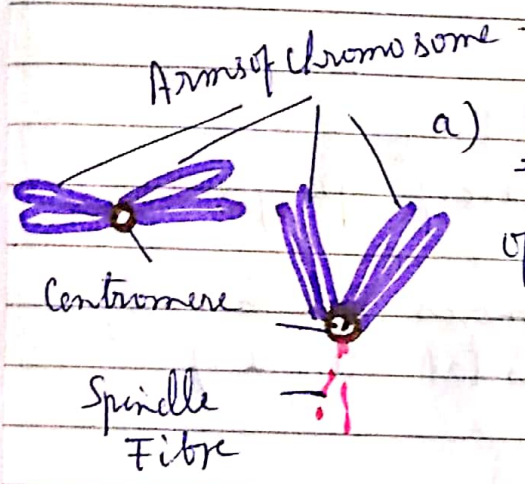 Arms of Chromosome
a)
Centromere
Spindle
Fibre